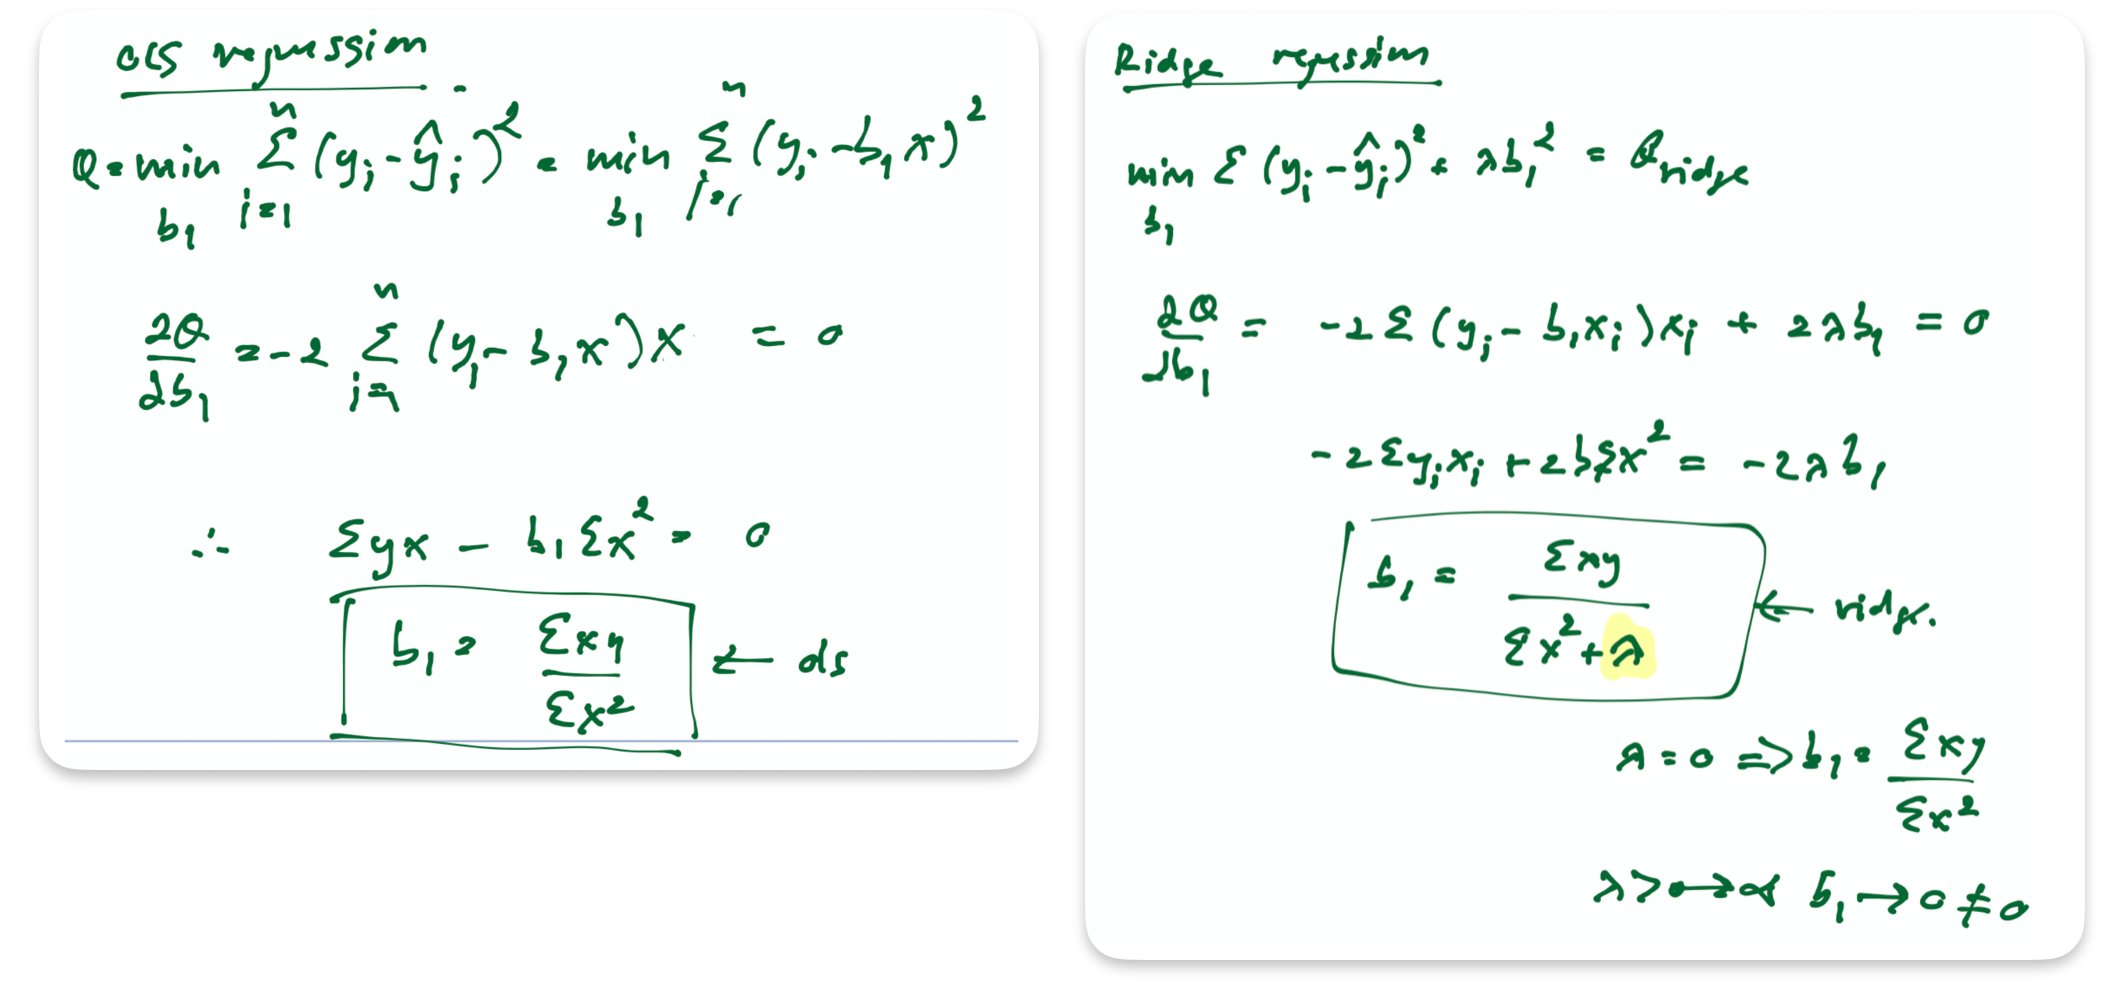 OLS regression
Q = min b₁ Σ i=1 n (yᵢ - ŷᵢ)² = min b₁ Σ i=1 n (yᵢ - b₁x)²
∂Q/∂b₁ = -2 Σ i=1 n (yᵢ - b₁x)x = 0
∴ Σyx - b₁Σx² = 0
b₁ = Σxy / Σx² ← ols
Ridge regression
min b₁ Σ(yᵢ - ŷᵢ)² + λb₁² = Q ridge
∂Q/∂b₁ = -2Σ(yᵢ - b₁xᵢ)xᵢ + 2λb₁ = 0
-2Σyᵢxᵢ + 2b₁Σx² = -2λb₁
b₁ = Σxy / Σx² + λ ← ridge.
λ = 0 ⇒ b₁ = Σxy / Σx²
λ > 0 → ∝ b₁ → 0 ≠ 0